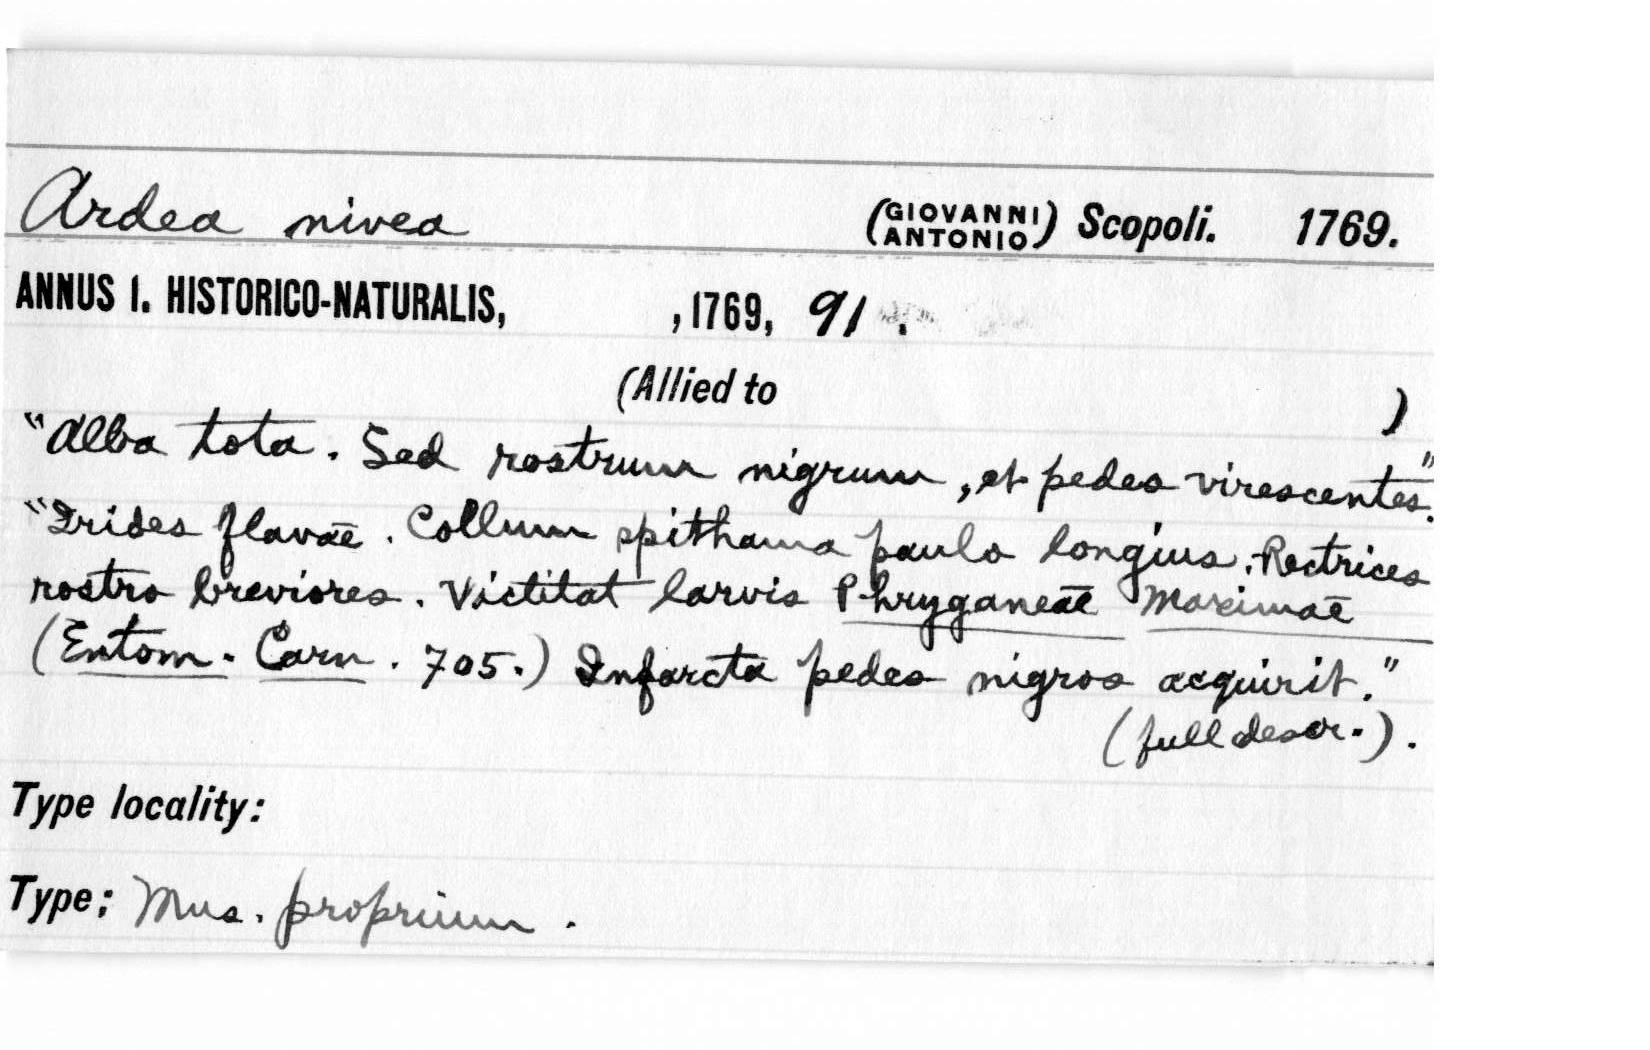 Ardea nivea (GIOVANNI ANTONIO) Scopoli. 1769.
ANNUS I. HISTORICO-NATURALIS, , 1769, 91 .
(Allied to )
"Alba tota. Sed rostrum nigrum, et pedes virescentes."
"Irides flavae. Collum spithama paulo longius. Rectrices
rostro breviores. Victitat larvis Phryganeae Maximae
(Entom. Carn. 705.) Infarcta pedes nigros acquirit."
(full descr.).
Type locality:
Type: Mus. proprium.